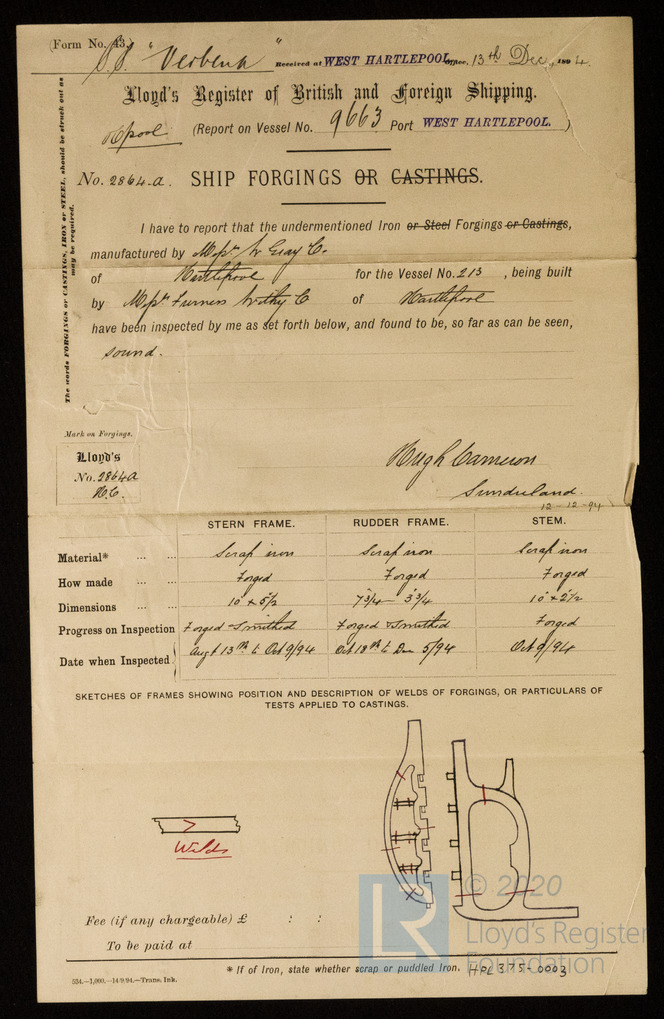 (Form No. 43.)
S.S "Verbena" Received at WEST HARTLEPOOL Office, 13th Dec, 1894.
Lloyd's Register of British and Foreign Shipping.
Hpool (Report on Vessel No. 9663 Port WEST HARTLEPOOL.)
No. 2864-a. SHIP FORGINGS OR CASTINGS.
The words FORGINGS or CASTINGS, IRON or STEEL, should be struck out as
may be required.
I have to report that the undermentioned Iron or Steel Forgings or Castings,
manufactured by Messrs W Gray & Co.
of Hartlepool for the Vessel No. 213, being built
by Messrs Furness Withy & Co of Hartlepool
have been inspected by me as set forth below, and found to be, so far as can be seen,
sound.
Mark on Forgings.
Lloyd's
No. 2864a
H.C.
Hugh Cameron
Sunderland.
12-12-94
STERN FRAME. RUDDER FRAME. STEM.
Material* ... ... Scrap iron Scrap iron Scrap iron
How made ... ... Forged Forged Forged
Dimensions ... ... 10" x 5 1/2 7 3/4 - 3 3/4 10" x 2 1/2
Progress on Inspection Forged & Smithed Forged & Smithed Forged
Date when Inspected Augt 13th to Oct 9/94 Oct 18th to Dec 5/94 Oct 9/94
SKETCHES OF FRAMES SHOWING POSITION AND DESCRIPTION OF WELDS OF FORGINGS, OR PARTICULARS OF
TESTS APPLIED TO CASTINGS.
Welds
Fee (if any chargeable) £ : :
To be paid at
* If of Iron, state whether scrap or puddled Iron. HPL375-0003
554.—1,000.—14/9/94.—Trans. Ink.
LR
© 2020
Lloyd's Register
Foundation